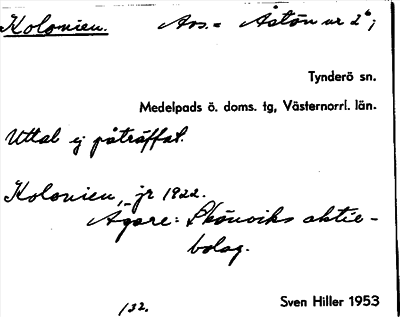 Kolonien. Avs. = Åstön nr 2⁶;
Tynderö sn.
Medelpads ö. doms. tg, Västernorrl. län.
Uttal ej påträffat.
Kolonien, jr 1922.
Ägare: Skönviks aktie-
bolag.
132.
Sven Hiller 1953